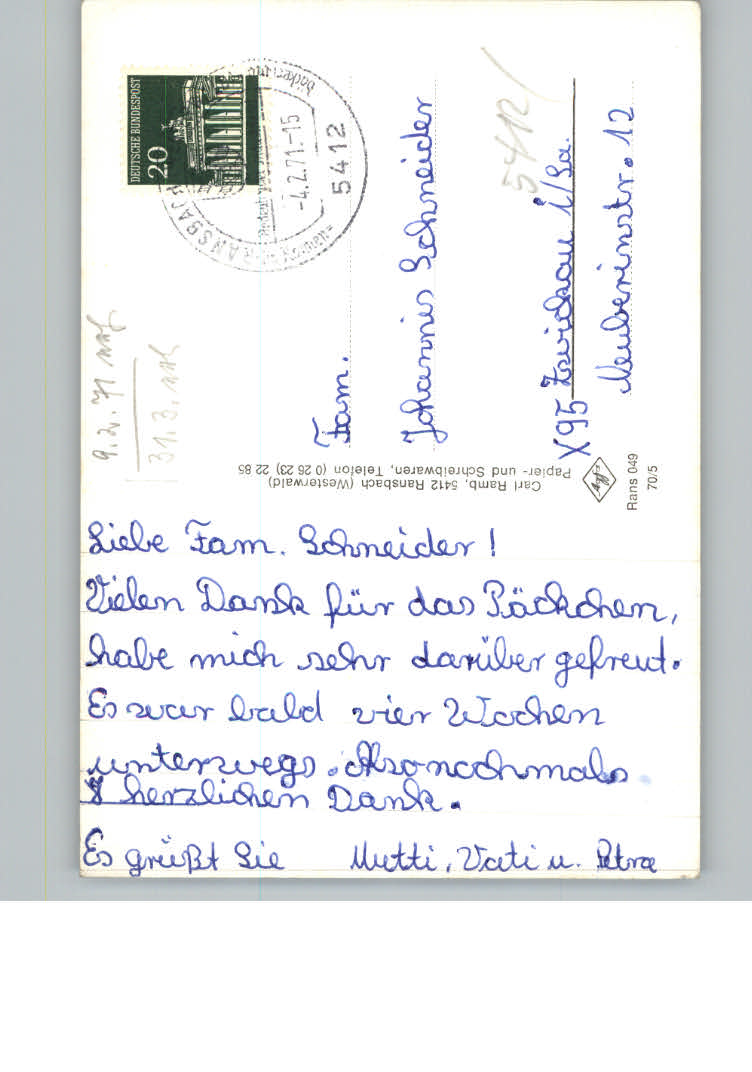 Liebe Fam. Schneider!
Vielen Dank für das Päckchen,
habe mich sehr darüber gefreut.
Es war bald vier Wochen
unterwegs. Also nochmals
herzlichen Dank.
Es grüßt Sie Mutti, Vati u. Petra
Fam.
Johannes Schneider
X95 Zwickau i/Sa.
Neuberinstr. 12
5412
9.2.71
31.3.
DEUTSCHE BUNDESPOST
20
RANSBACH
-4.2.71.-15
5412
Carl Ramb, 5412 Ransbach (Westerwald)
Papier- und Schreibwaren, Telefon (0 26 23) 22 85
Agfa
Rans 049
70/5